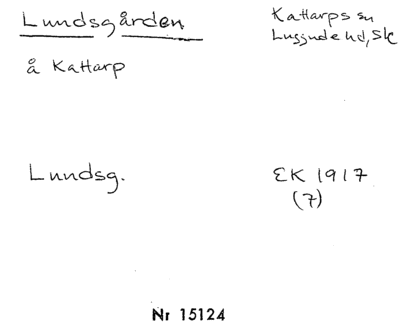 Lundsgården
Kattarps sn
Luggude hd, Sk
å Kattarp
Lundsg.
EK 1917
(7)
Nr 15124